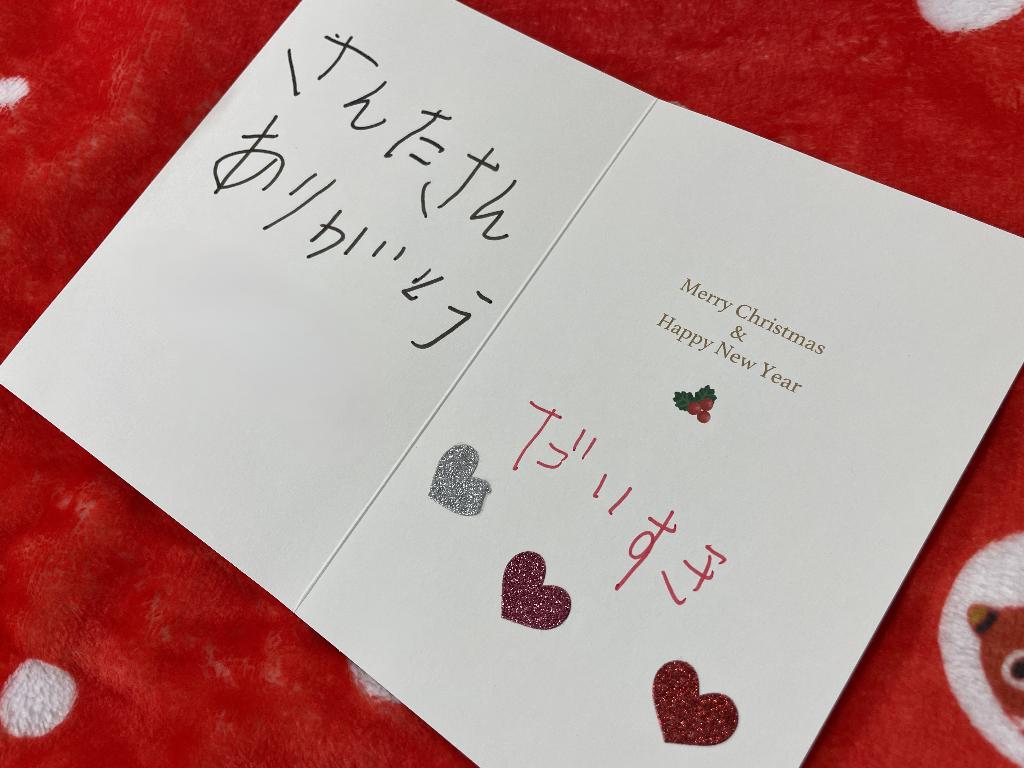 さんたさん
ありがとう
Merry Christmas
&
Happy New Year
だいすき